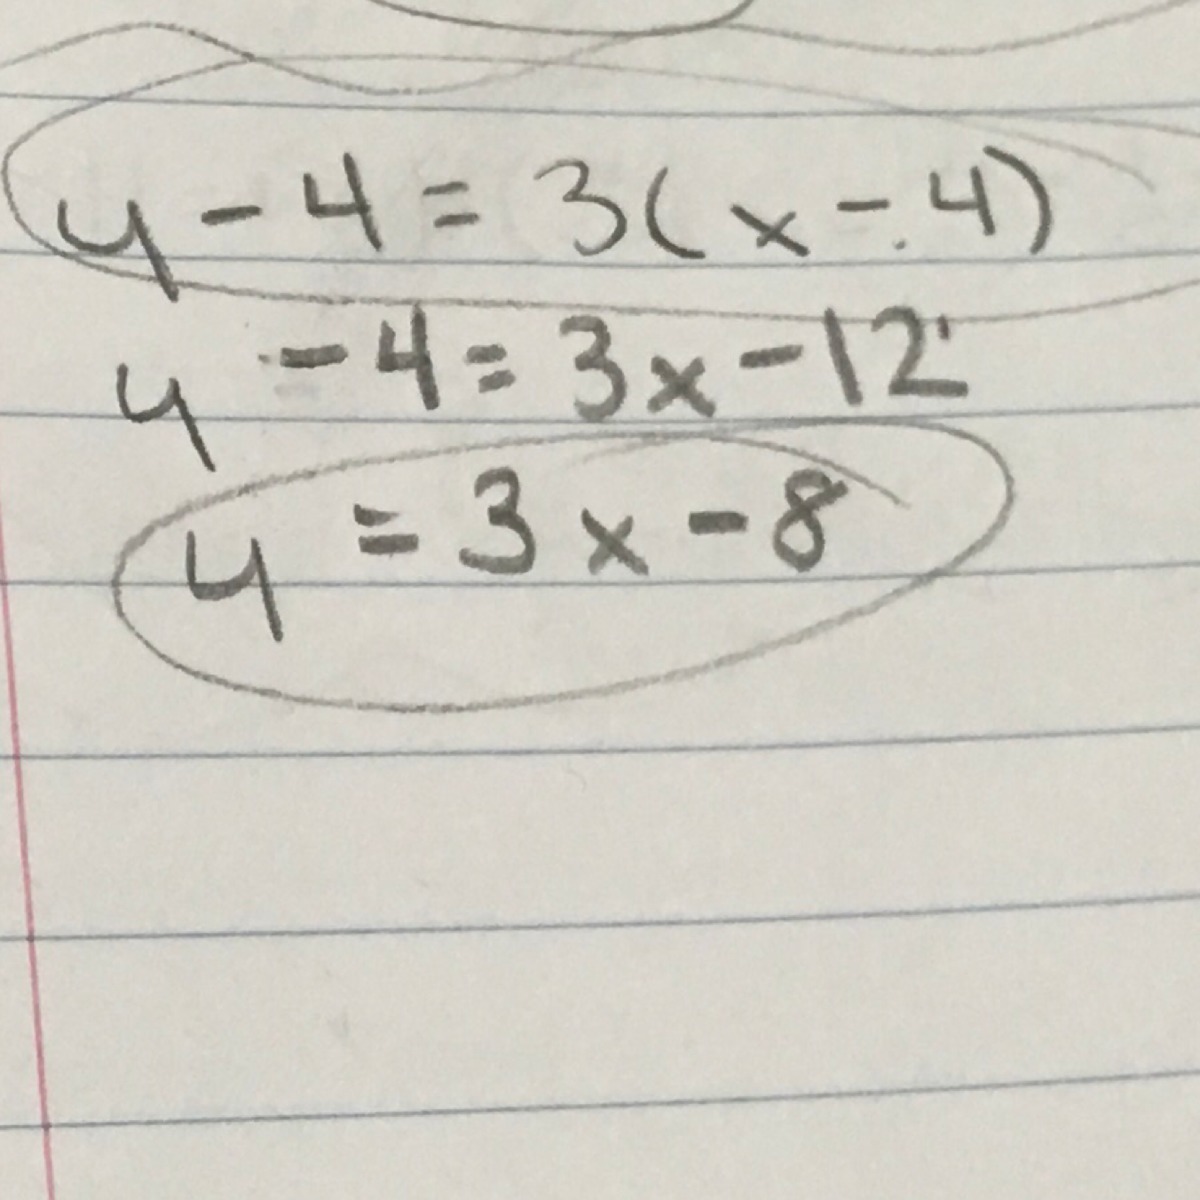 y - 4 = 3(x - 4)
y - 4 = 3x - 12
y = 3x - 8